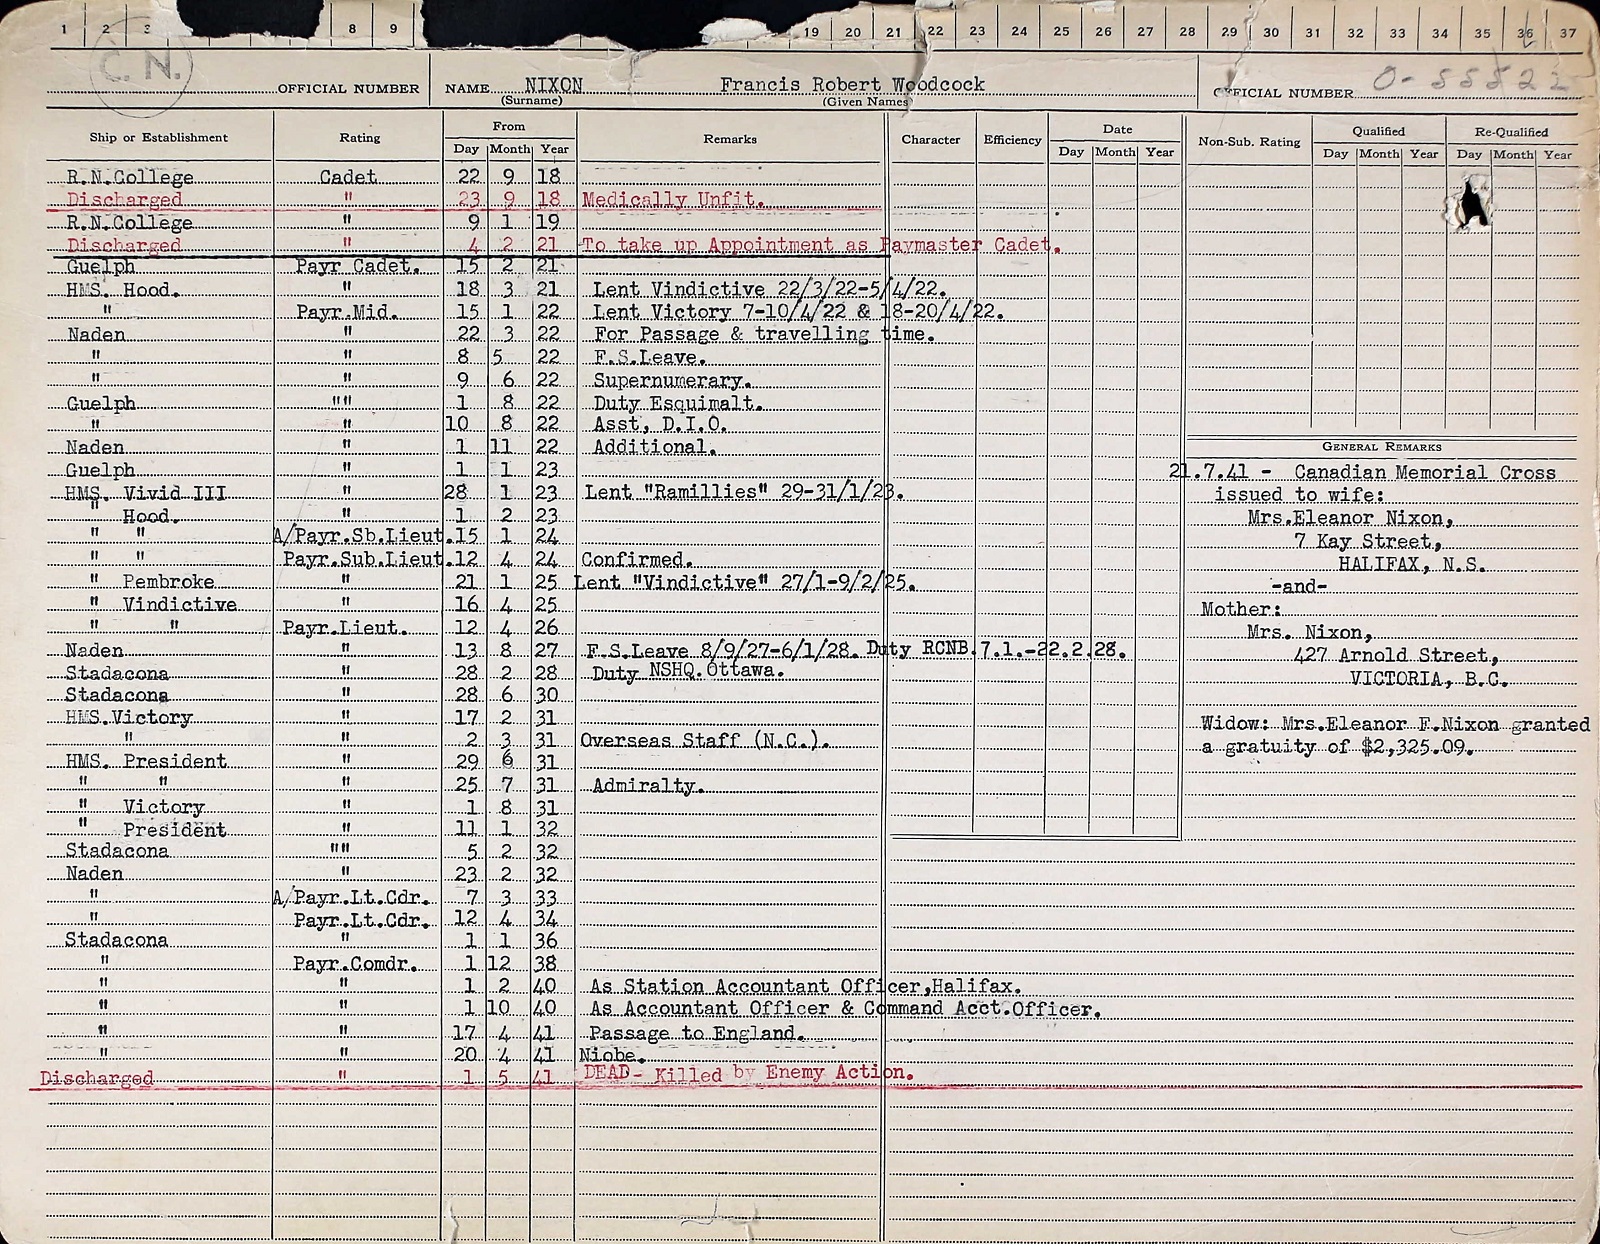 1 2 3 8 9 19 20 21 22 23 24 25 26 27 28 29 30 31 32 33 34 35 36 37
C. N.
OFFICIAL NUMBER NAME NIXON Francis Robert Woodcock OFFICIAL NUMBER O-55522
(Surname) (Given Names)
Ship or Establishment Rating From Remarks Character Efficiency Date Non-Sub. Rating Qualified Re-Qualified
Day Month Year Day Month Year Day Month Year Day Month Year
R.N.College Cadet 22 9 18
Discharged " 23 9 18 Medically Unfit.
R.N.College " 9 1 19
Discharged " 4 2 21 To take up Appointment as Paymaster Cadet.
Guelph Payr Cadet. 15 2 21
HMS. Hood. " 18 3 21 Lent Vindictive 22/3/22-5/4/22.
" Payr.Mid. 15 1 22 Lent Victory 7-10/4/22 & 18-20/4/22.
Naden " 22 3 22 For Passage & travelling time.
" " 8 5 22 F.S.Leave.
" " 9 6 22 Supernumerary.
Guelph "" 1 8 22 Duty Esquimalt.
" " 10 8 22 Asst, D.I.O.
Naden " 1 11 22 Additional.
Guelph " 1 1 23
HMS. Vivid III " 28 1 23 Lent "Ramillies" 29-31/1/23.
" Hood. " 1 2 23
" " A/Payr.Sb.Lieut. 15 1 24
" " Payr.Sub.Lieut. 12 4 24 Confirmed.
" Pembroke " 21 1 25 Lent "Vindictive" 27/1-9/2/25.
" Vindictive " 16 4 25
" " Payr.Lieut. 12 4 26
Naden " 13 8 27 F.S.Leave 8/9/27-6/1/28. Duty RCNB.7.1.-22.2.28.
Stadacona " 28 2 28 Duty NSHQ.Ottawa.
Stadacona " 28 6 30
HMS.Victory " 17 2 31
" " 2 3 31 Overseas Staff (N.C.).
HMS. President " 29 6 31
" " " 25 7 31 Admiralty.
" Victory " 1 8 31
" President " 11 1 32
Stadacona "" 5 2 32
Naden " 23 2 32
" A/Payr.Lt.Cdr. 7 3 33
" Payr.Lt.Cdr. 12 4 34
Stadacona " 1 1 36
" Payr.Comdr. 1 12 38
" " 1 2 40 As Station Accountant Officer,Halifax.
" " 1 10 40 As Accountant Officer & Command Acct.Officer.
" " 17 4 41 Passage to England.
" " 20 4 41 Niobe.
Discharged " 1 5 41 DEAD- Killed by Enemy Action.
GENERAL REMARKS
21.7.41 - Canadian Memorial Cross
issued to wife:
Mrs.Eleanor Nixon,
7 Kay Street,
HALIFAX, N.S.
-and-
Mother:
Mrs. Nixon,
427 Arnold Street,
VICTORIA, B.C.
Widow: Mrs.Eleanor F.Nixon granted
a gratuity of $2,325.09.